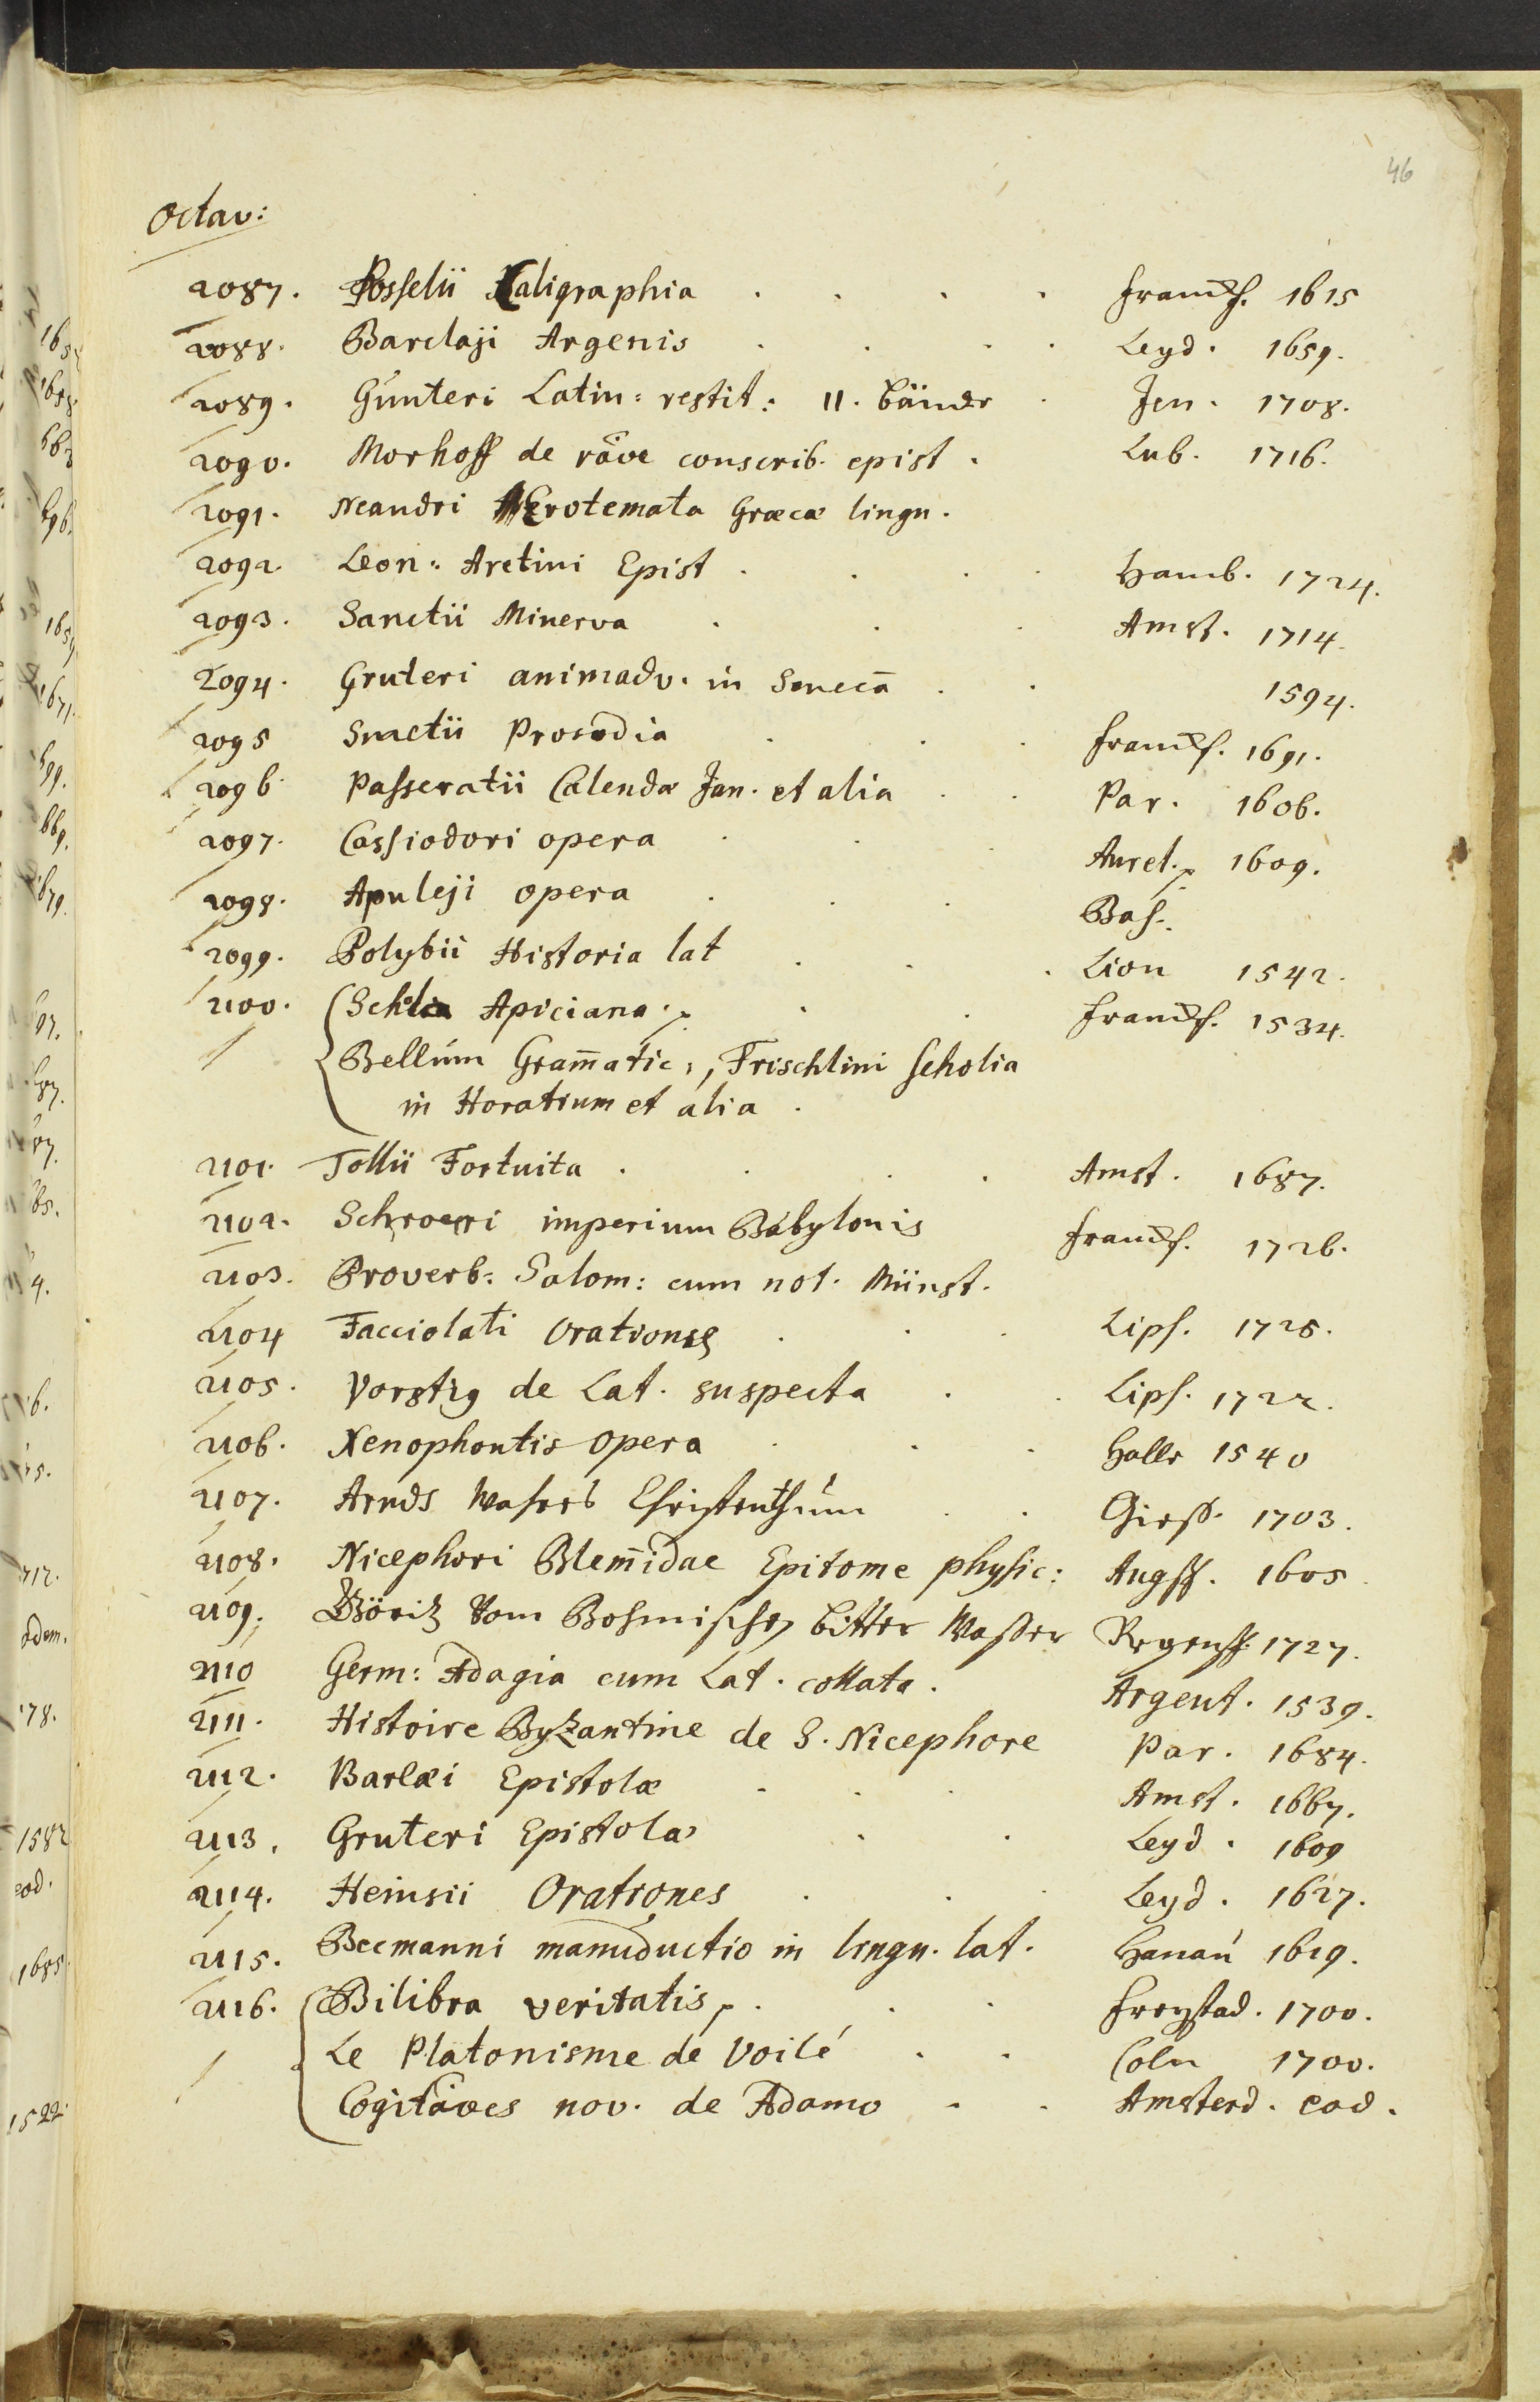 46
Octav:
2087. Posselii Caligraphia . . . . Franckf. 1615
2088. Barclaji Argenis . . . . Leyd. 1659.
2089. Gúnteri Latin: restit: II. Bände . Jen. 1708.
2090. Morhoff de rãoe conscrib. epist. Lub. 1716.
2091. Neandri Erotemata Græcæ lingu.
2092. Leon: Aretini Epist . . . . Hamb. 1724.
2093. Sanctii Minerva . . . Amst. 1714.
2094. Gruteri animadv. in Senecā . . 1594.
2095 Smetii Prosodia . . . Franckf. 1691.
2096. Passeratii Calendæ Jan. et alia . . Par. 1606.
2097. Cassiodori opera . . . Aurel. 1609.
2098. Apuleji opera . . . Bas.
2099. Polybii Historia lat . . . Lion 1542.
2100. Apiciana . . Franckf. 1534.
Bellúm Gram̄atic:, Frischlini scholia
in Horatium et alia .
2101. Tollii Fortuita . . . . Amst. 1687.
2102. Schroeri imperium Babylonis Franckf. 1726.
2103. Proverb: Salom: cum not. Münst.
2104 Facciolati Orationes . . . Lips. 1725.
2105. Vorstig de Lat. suspecta . . Lips. 1722.
2106. Xenophontis opera . . . Halle 1540
2107. Arnds Wahres Christenthúm . . Gieß. 1703.
2108. Nicephori Blem̄idae Epitome physic: Augsp. 1605
2109. Göritz Vom Bohmischen bitter Waßer Regensp. 1727.
2110 Germ: Adagia cum Lat. collata. Argent. 1539.
2111. Histoire Byzantine de S. Nicephore Par. 1684.
2112. Barlæi Epistolæ . . . Amst. 1667.
2113. Gruteri Epistolæ . . Leyd. 1609
2114. Heinsii Orationes . . . Leyd. 1627.
2115. Becmanni manuductio in lingu. lat. Hanaú 1619.
2116. Bilibra veritatis, . . . Freystad. 1700.
Le Platonisme de Voilé . . Coln 1700.
Cogitãoes nov. de Adamo . . Amsterd. eod.